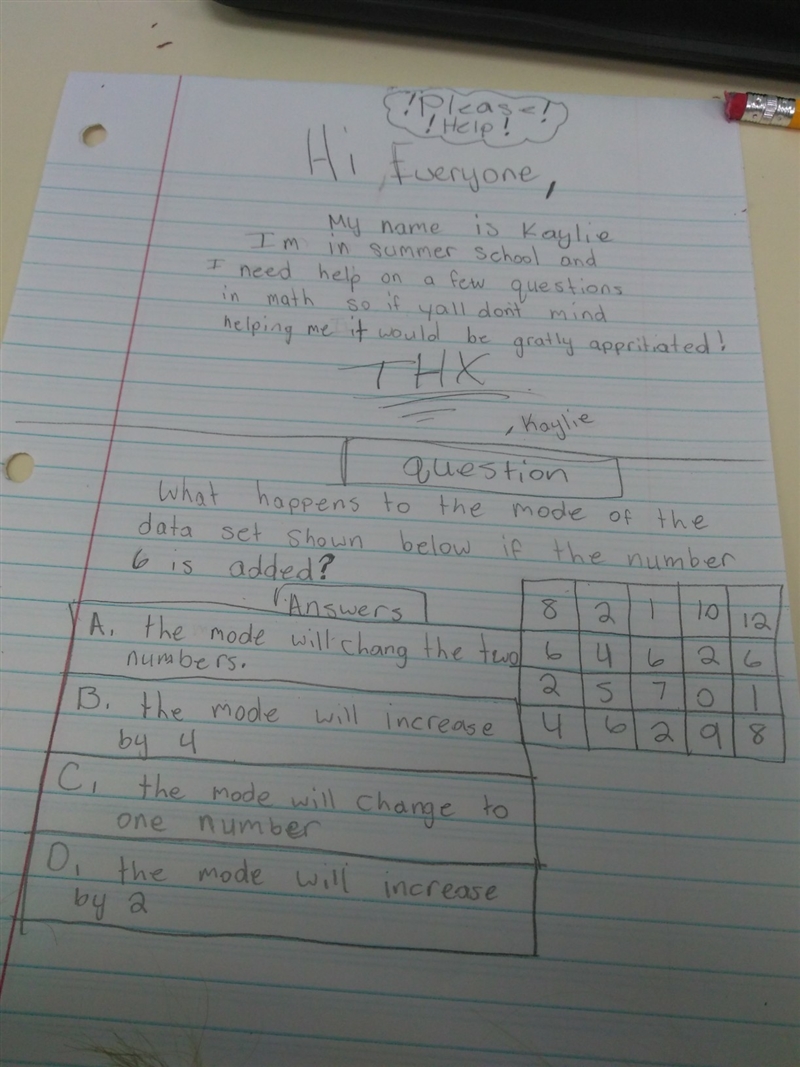 !Please!
!Help!
Hi Everyone,
My name is Kaylie
Im in summer school and
I need help on a few questions
in math so if yall don't mind
helping me it would be gratly appritiated!
THX
, Kaylie
Question
What happens to the mode of the
data set shown below if the number
6 is added?
Answers
A. the mode will chang the two
numbers.
B. the mode will increase
by 4
C. the mode will change to
one number
D. the mode will increase
by 2
8 2 1 10 12
6 4 6 2 6
2 5 7 0 1
4 6 2 9 8